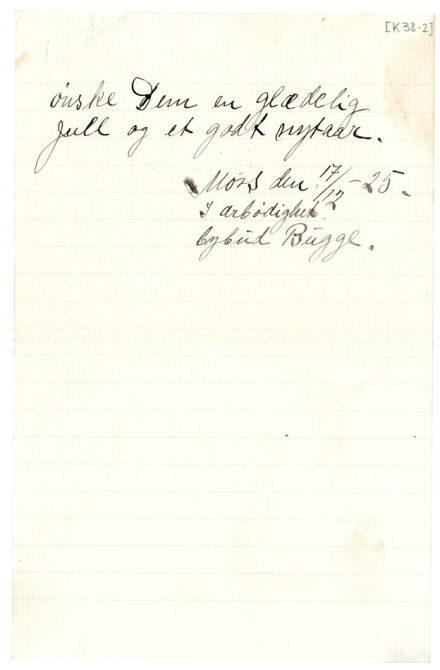 [K38-2]
ønske Dem en glædelig
jull og et godt nytaar.
Moss den 17/12-25.
I ærbødighet.
bybud Bugge.